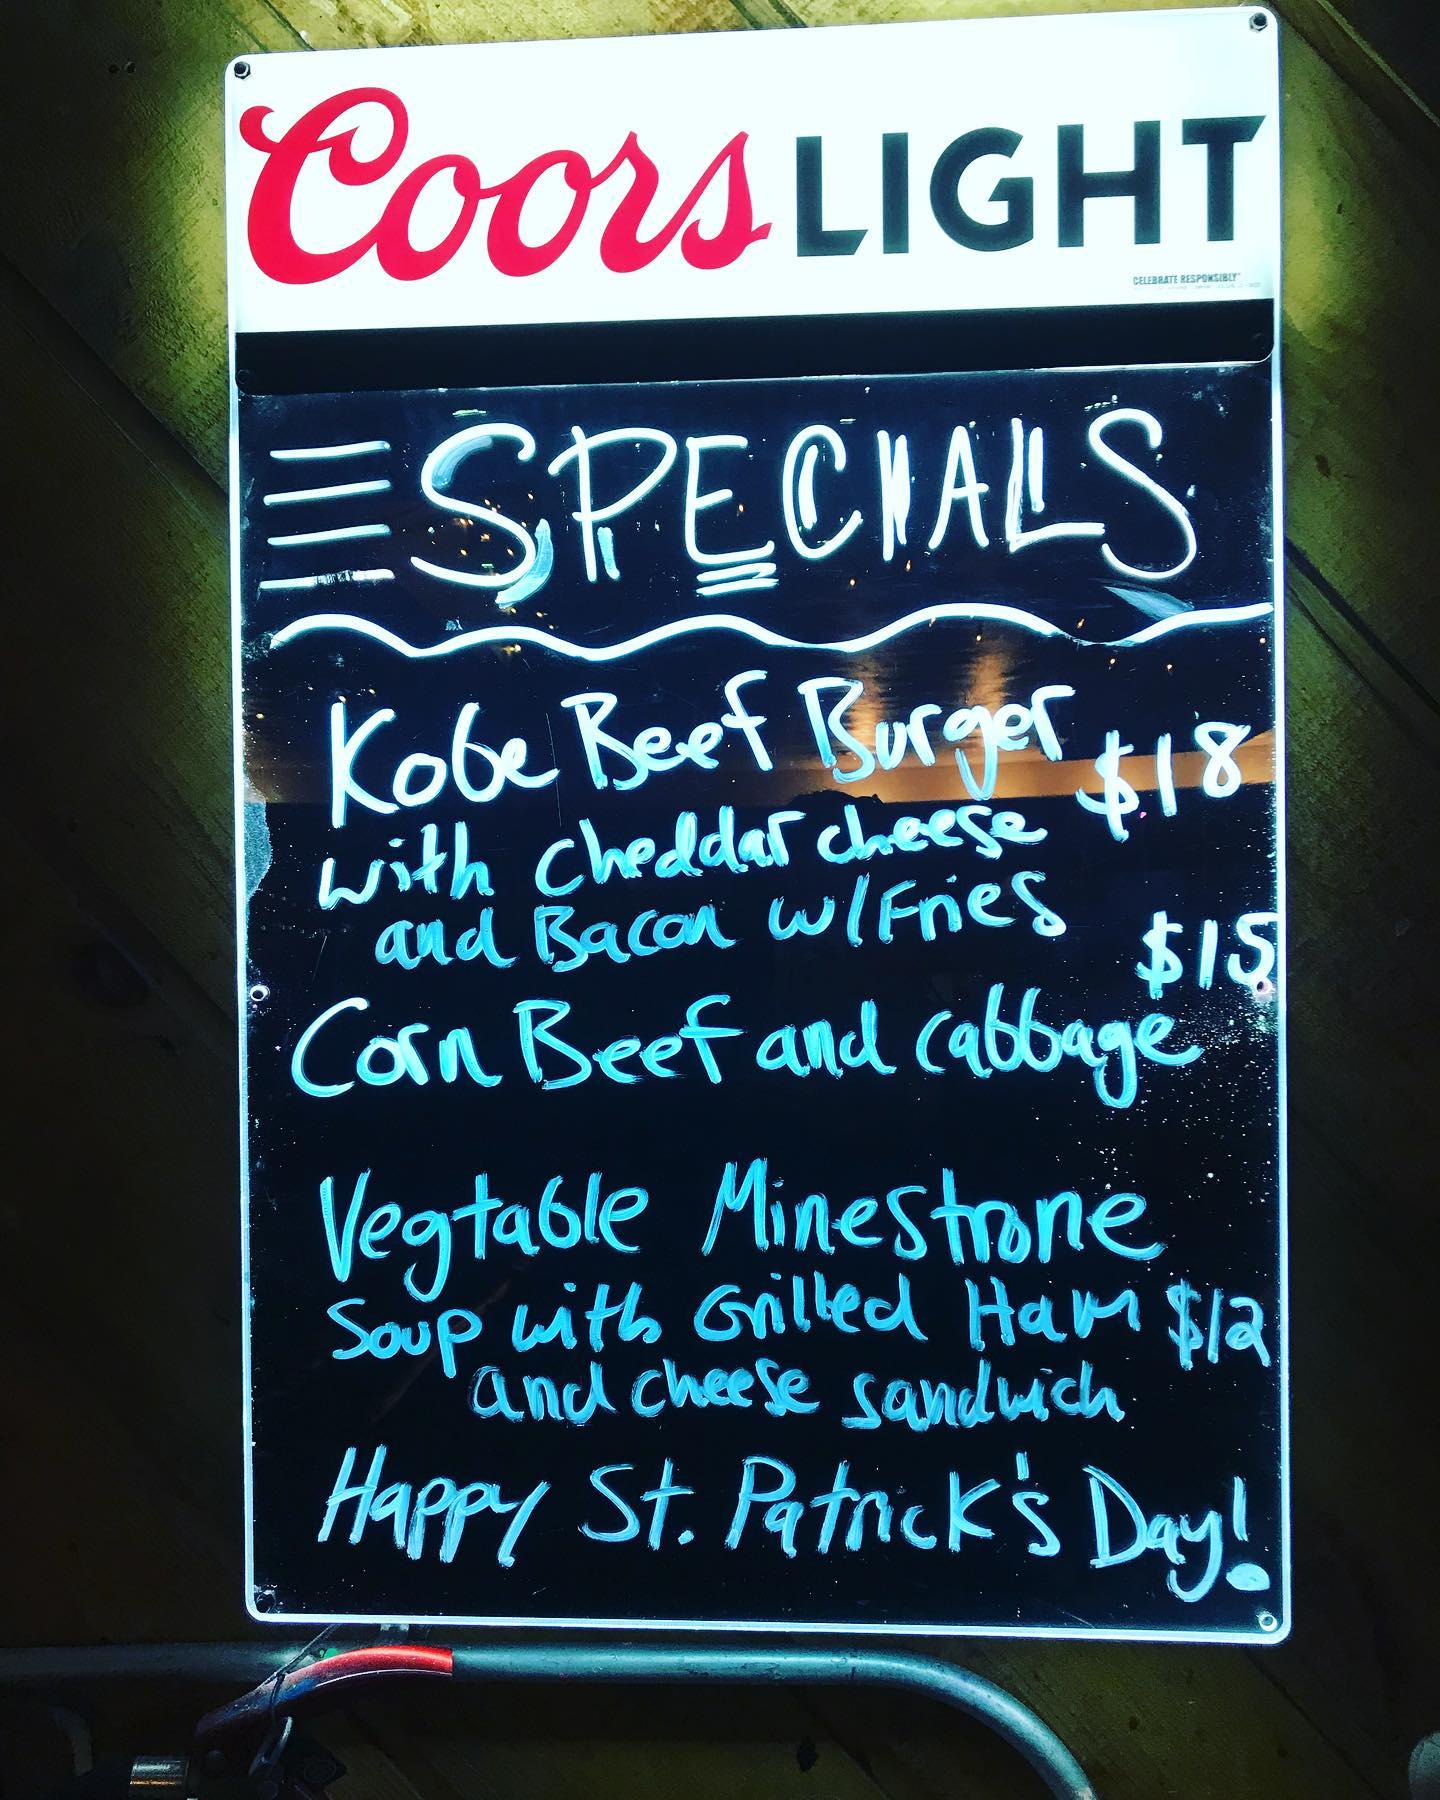 Coors LIGHT
CELEBRATE RESPONSIBLY
SPECIALS
Kobe Beef Burger $18
with cheddar cheese
and Bacon w/Fries
$15
Corn Beef and cabbage
Vegtable Minestrone
Soup with Grilled Ham $12
and cheese sandwich
Happy St. Patrick's Day!